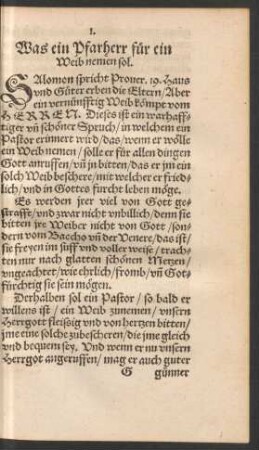 1.
Was ein Pfarherr für ein
Weib nemen sol.
SAlomon spricht Prouer. 19. Haus
vnd Güter erben die Eltern / Aber
ein vernünfftig Weib kömpt vom
HERREN. Dieses ist ein warhaff-
tiger vñ schöner Spruch / in welchem ein
Pastor erinnert wird / das / wenn er wölle
ein Weib nemen / solle er für allen dingen
Gott anruffen / vñ jn bitten / das er jm ein
solch Weib beschere / mit welcher er fried-
lich / vnd in Gottes furcht leben möge.
Es werden jrer viel von Gott ge-
strafft / vnd zwar nicht vnbillich / denn sie
bitten jre Weiber nicht von Gott / son-
dern vom Baccho vñ der Venere / das ist /
sie freyen im suff vnd voller weise / trach-
ten nur nach glatten schönen Metzen /
vngeachtet / wie ehrlich / fromb / vñ Got-
fürchtig sie sein mögen.
Derhalben sol ein Pastor / so bald er
willens ist / ein Weib zunemen / vnsern
Herrgott fleissig vnd von hertzen bitten /
jme eine solche zubescheren / die jme gleich
vnd bequem sey. Vnd wenn er nu vnsern
Herrgot angeruffen / mag er auch guter
G günner